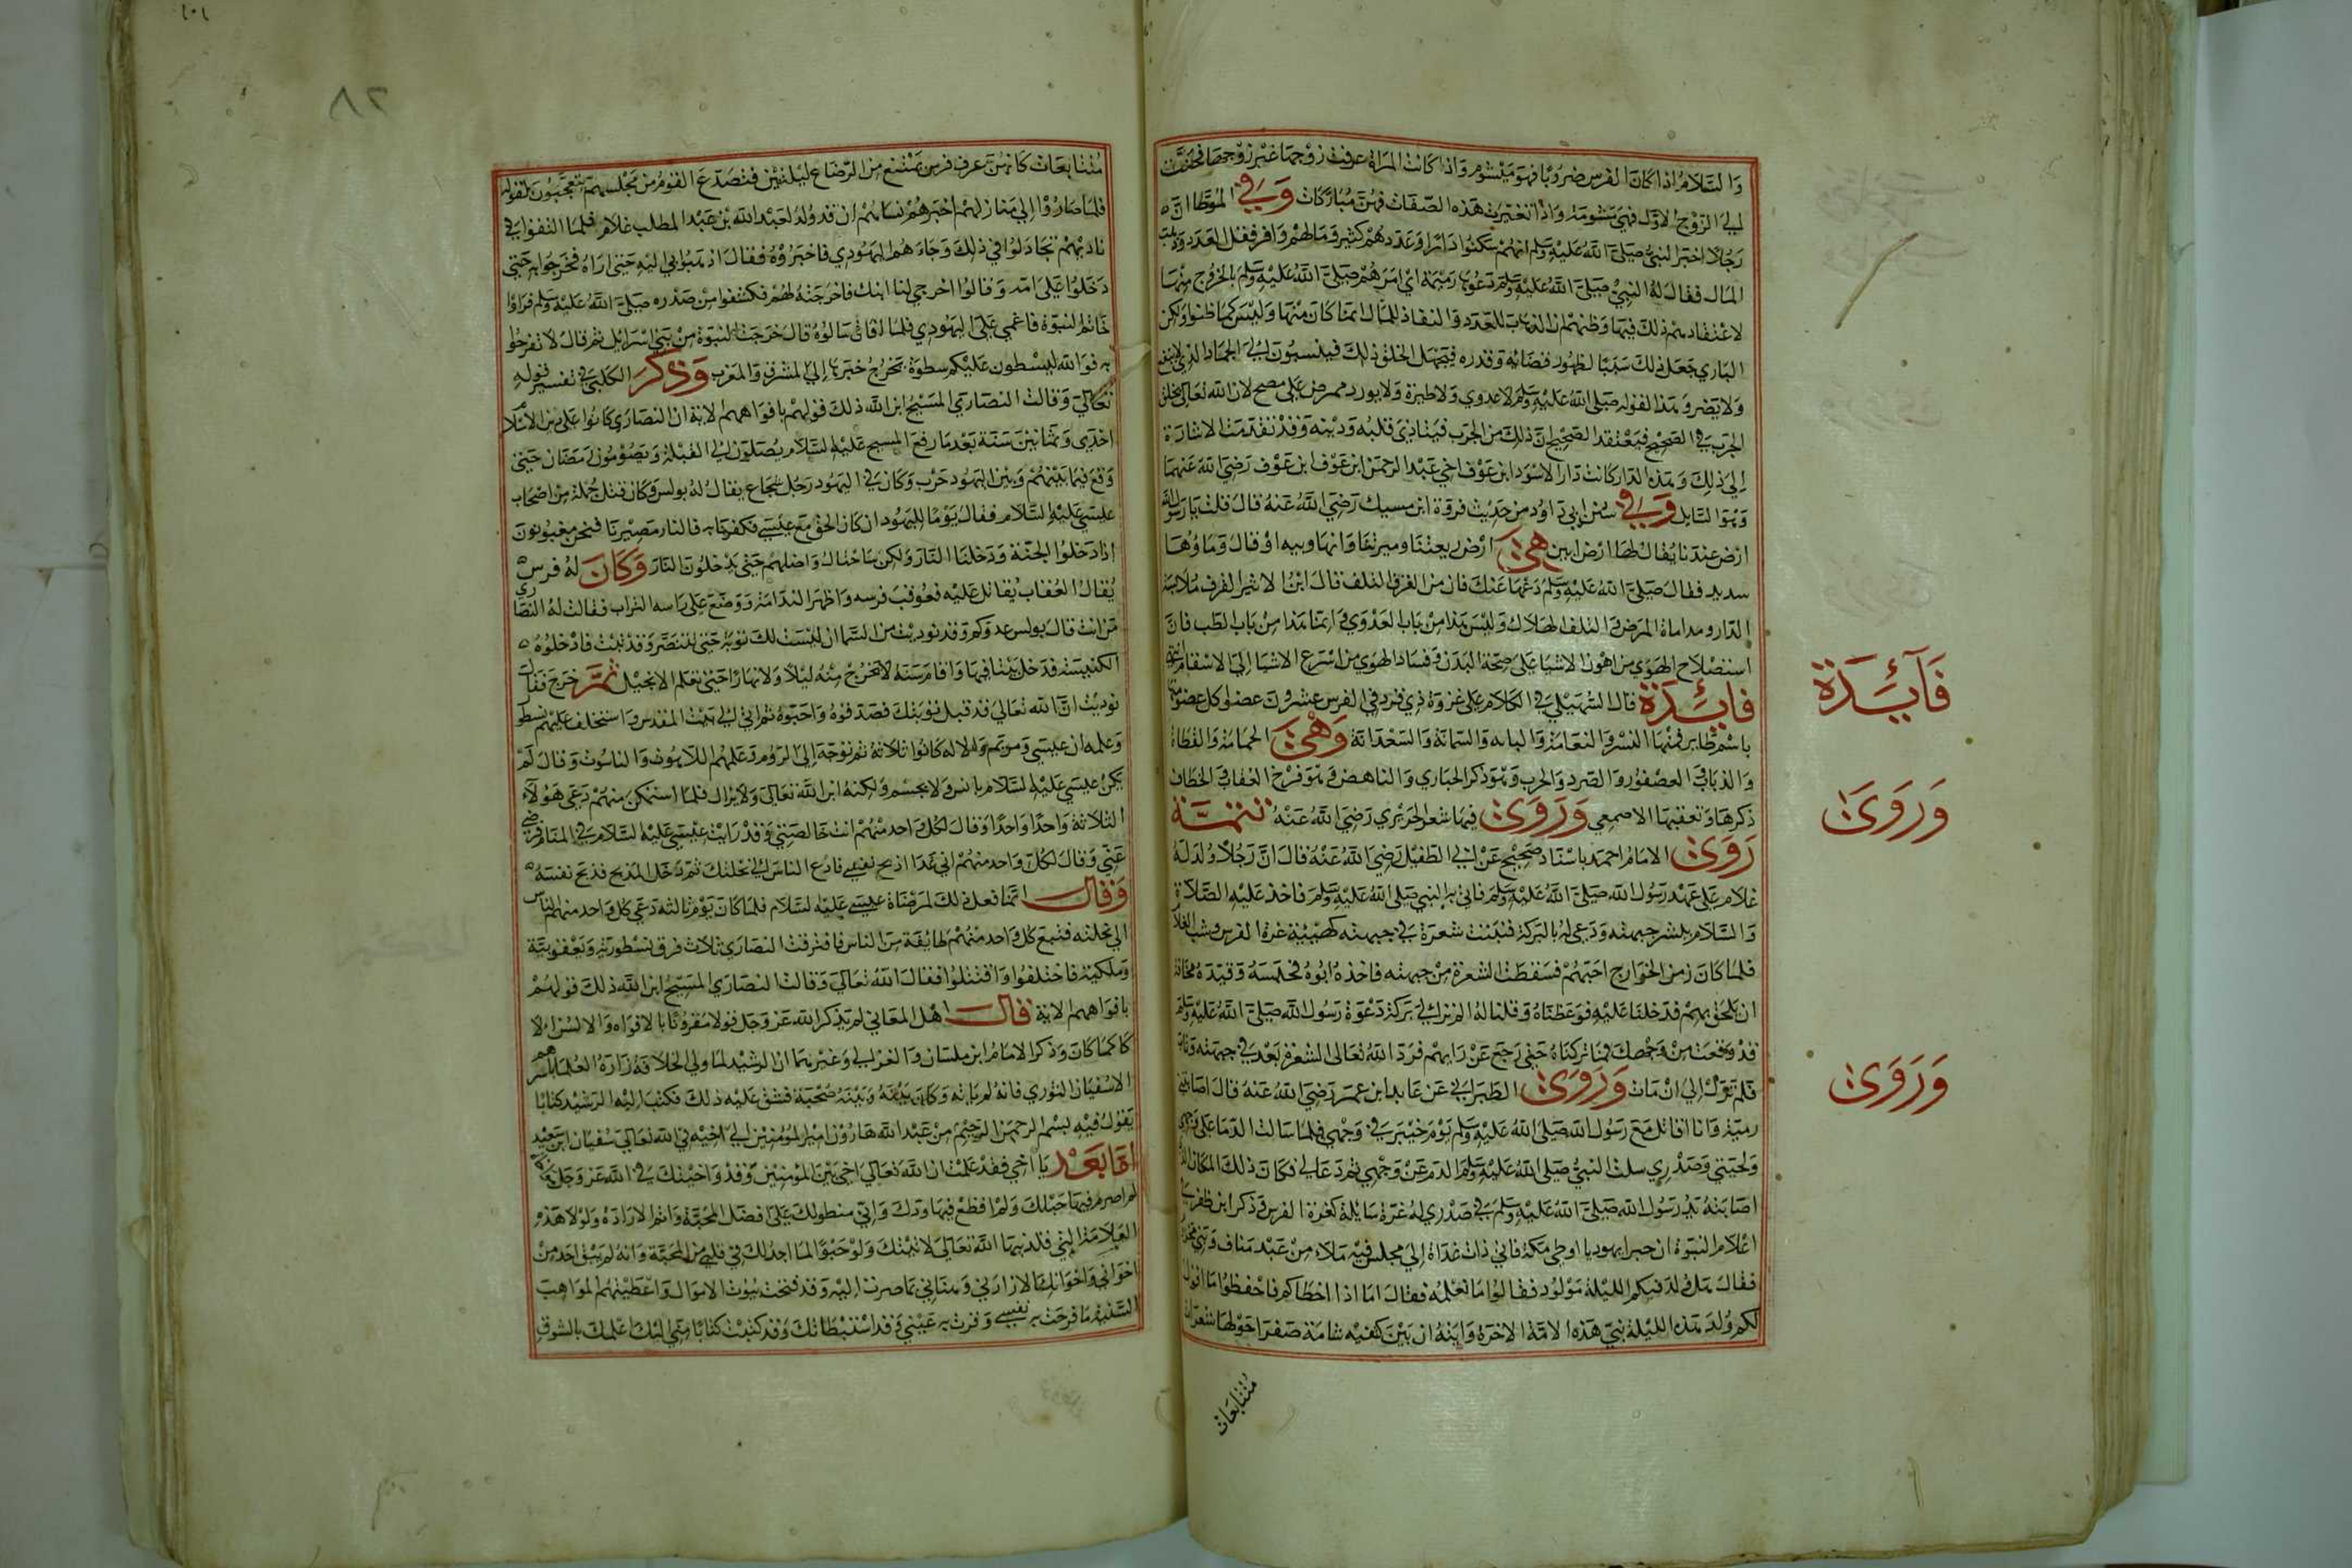 وَالسَّلامُ اذا كانَ الفرس ضروبًا فهوَ مَيْشوم وَاذا كانت المرَاة عرفت زوْجهَا غيْر زوْجهَا فحنّت
الي الزوْج الاوّل فهيَ مَيشومَة وَاذا تغيّرت هذه الصّفات فهنّ مُبارَكات وَفي الموَطّا انّ
رجُلاً اخبرَ النبيَّ صَلى اللهُ عليْهِ وَسَلم انهُم سَكنوا دَارًا وَعَددهُم كثير وَمَالهُم وَافر فقل العَدد وَذهب
المَال فقالَ لهُ النبيّ صَلى اللهُ عليْهِ وَسَلم دَعُوها ذميْمَة اي امَرَهُم صَلى اللهُ عليْهِ وَسَلم بالخروج منهَا
لاعْتقادهم ذلكَ فيها وَظنهُم ان الذهَابَ للعَدد وَالنفاذ للمَال انما كانَ منهَا وَليْسَ كما ظنوا وَلكن
البَاري جَعَل ذلكَ سَببًا لظهُور قضَائه وَقدره فيَجْهَل الخلق ذلكَ فينسبُونَ الي الجمَاد الذي لا ينفع
وَلا يَضر وَهذا لقوله صَلى اللهُ عليْهِ وَسَلم لا عدوي وَلا طيرَة وَلا يورد ممرض عَلى مصح لان الله تعَالي يخلق
الجرَب في الصّحِيْح فيَعْتقد الصّحِيْح انّ ذلكَ من الجرَب فيَتاذي قلبهُ وَديْنه وَقدْ تقدّمَت الاشارَة
الي ذلكَ وَهذه الدّار كانت دَار الاسْوَد ابن عَوْف اخي عَبْد الرحمَن ابن عَوْف رَضيَ اللهُ عَنهمَا
وَهوَ السَّايل وَفي سُنن ابي دَاوُد من حَديْث فروَة ابن مسيك رَضيَ اللهُ عَنهُ قالَ قلت يَا رَسُولَ الله
ارض عندنا يُقالُ لهَا ارْض ابين هيَ ارْض ريفنا وَميرتنا وَانها وبيه اوْ قالَ وَمَاؤهَا
شديد فقالَ صَلى اللهُ عليْهِ وَسَلم دَعْهَا عَنكَ فان من القرَف التلف قالَ ابْن الاثير القرف مُلابسَة
الدّا ومداناة المرَض وَالتلف الهلاك وَليْسَ هَذا من بَاب العَدْوَي وَانما هَذا منْ بَاب الطّب فانّ
استصْلاح الهوَي من اهْون الاشيَا عَلى صِحّة البَدَن وَفسَاد الهوَي من اسْرَع الاشيَا الي الاسْقام
فايدَة قالَ السُّهَيْلي في الكلام عَلى غزوَة ذي قرد في الفرس عشرُونَ عضوًا كل عضو منهَا
باسْم طَاير فمنْهَا النسْر وَالنعَامَة وَالهامه وَالسّمانة وَالسَعْدَانة وَهيَ الحمَامَة وَالقطاة
وَالذبَاب وَالعصْفُور وَالصّرَد وَالخرب وَهوَ ذكر الحبَاري وَالناهض وَهوَ فرخ العقاب وَالخطاف
ذكرهَا وَتعَقبهَا الاصمعي وَرَوَي فيهَا شعر الجريري رَضيَ اللهُ عَنهُ تتمَّة
رَوَي الامَامُ احمَد باسْنادٍ صَحِيْح عَنْ ابي الطفيْل رَضيَ اللهُ عَنهُ قالَ انّ رَجُلاً وُلدَ لَهُ
غلام عَلى عَهْد رَسُول الله صَلى اللهُ عليْهِ وَسَلم فاتي به النبي صَلى اللهُ عليْهِ وَسَلم فاخذ عَليْه الصّلاة
وَالسّلام ببشر جبهته وَدَعي لهُ بالبَركة فنبَتت شعرَة في جبهته كهيئة غرة الفرس وشب الغلام
فلمّا كانَ زمن الخوَارج احَبهُم فسَقطت الشعرَة من جبهته فاخذهُ ابُوهُ فحبسَهُ وَقيّدَهُ مخافة
ان يلحَق بهم فدَخلنا عَليْه فوَعَظناهُ وَقلنا لهُ الم تر الي بَركة دَعْوَة رَسُول الله صَلى اللهُ عليْهِ وَسَلم
قدْ وَقعَت منْ وَجْهكَ فمَا تركناهُ حَتى رَجَعَ عَنْ رَايهم فرَدّ اللهُ تعَالى الشعرَة بَعْد في جبهته وَتابَ
فلم تزَلْ الي انْ مَات وَرَوَي الطّبرَاني عَن عَايد ابن عمرَ رَضيَ اللهُ عَنهُ قالَ اصَابتني
رميَة وَانا اقاتل مَعَ رَسُول الله صَلى اللهُ عليْهِ وَسَلم يَوْم خيْبَر في وَجْهي فلمّا سَالت الدّمَا عَلى وَجهي
وَلحيَتي وَصَدْري سلت النبيُّ صَلى اللهُ عليْهِ وَسَلم الدم عَنْ وَجْهي ثم دَعَا لي فكانَ ذلكَ المكان الذي
اصَابتهُ يَد رَسُول الله صَلى اللهُ عليْهِ وَسَلم في صَدْري لهُ غرّة سَايلة كغرة الفرس وَذكر ابن ظفر في
اعْلام النبوّة ان حبرا يهوديا اوطي مكة فاتي ذات غدَاة الي مجلس فيْه ملاء منْ عَبْد مَناف وَبَني مخزوم
فقالَ هَل وُلدَ فيكم الليْلة مَوْلود فقالوا مَا نعْلمهُ فقالَ امَا اذا اخطاكم فاحْفظوا مَا اقول
لكم وُلدَ هَذه الليْلة نبيّ هَذه الامّة الاخرَة وَايَتهُ ان بَيْنَ كتفيْه شامَة صَفرَا حَوْلهَا شعرَات
متتابعَات
فَآيَدَة
وَرَوَي
وَرَوَي
٨٢
مُتتابعَات كانهُنّ عرف فرس يمْتنع من الرّضَاع ليْلتيْن فتصَدّعَ القوْمُ من مَجْلسهم يتعَجّبُونَ لقوله
فلمّا صَارُوا الي مَنازلهمْ اخبرَهُمْ نسَاؤهُمْ انْ قد وُلد لعَبْد الله بْن عَبْد المطلب غلام فلمّا التقوا في
ناديْهمْ تجَادَلُوا في ذلكَ وَجَاءَهُم اليَهُودي فاخبَرُوْهُ فقالَ اذهبُوا بي اليْه حَتى ارَاهُ فخرَجوا به حَتى
دَخلوا عَلى امّه وَقالوا اخرجي لنا ابنك فاخرَجَتهُ لهُم فكشفوا منْ صَدْره صَلى اللهُ عليْهِ وَسَلم فرَاوا
خَاتم النبوّة فاغمي عَلى اليَهُودي فلمّا افاق سَالوهُ قالَ خرَجَت النبوّة منْ بَني اسْرَايل ثم قالَ لا تفرحُوا
به فوَالله ليَسْطون عَليْكم سَطوَة يَخرُج خبَرهَا الي المشرق وَالمغرب وَذكَرَ الكَلبي في تفسير قوله
تعَالي وَقالت النصَارَي المَسيْح ابن الله ذلكَ قوْلهُمْ بافوَاههم الاية ان النصَارَي كانوا عَلى دين الاسْلام
احْدَي وَثمَانيْنَ سَنة بَعْد مَا رفعَ المسيح عَليْه السّلام يُصَلونَ الي القبْلة وَيَصُوْمُونَ رَمَضَان حَتى
وَقعَ فيمَا بَيْنهُمْ وَبيْن اليَهُود حَرْب وَكانَ في اليَهُود رَجُل شجَاع يقالُ لهُ بولس وَكان قتل جُملة من اصْحَاب
عيسي عَليْه السّلام فقالَ يَوْمًا لليَهُود ان كانَ الحق مَعَ عيسي فكفرنا به فالنار مصيْرنا فنحن مغبُونونَ
اذا دَخلوا الجنّة وَدَخلنا النارَ وَلكن سَاحتالُ وَاضلهُم حَتى يَدْخلونَ النارَ وَكانَ لهُ فرس
يُقالُ العُقابُ يُقاتل عَليْه فعُوقبَ فرسه وَاظهَر الندَامَة وَوَضَعَ عَلى رَاسه الترابَ فقالت لهُ النصَاري
مَن انت قالَ بولس عدوّكم وَقد نوديْت من السّمَا ان ليْسَت لكَ توبة حَتى تتنصَّر وَقد تبْت فادْخلوهُ
الكنيسَة فدَخل بَيْتا فيهَا وَاقام سَنة لا يخرُج منْهُ ليْلاً وَلا نهَارًا حَتى تعَلم الانجيْل ثمَّ خرَجَ فقال
نوديْت انّ اللهَ تعَالي قد قبل توبَتكَ فصَدّقوهُ وَاحَبّوهُ ثم اتي الي بَيْت المقدس وَاستخلف عَليْهم نسطور
وَعلمه ان عيسي وَمريَم وَالاله كانوا ثلاثة ثم توجّهَ الي الرّوم وَعَلمهُم اللاهُوت وَالناسُوت وَقالَ لم
يَكنْ عيسي عَليْه السّلام بانس وَلا بجسْم وَلكنهُ ابن الله تعَالي وَلا يزال فلمّا استمْكن منهُم دَعي هَؤلاء
الثلاثة وَاحدًا وَاحدًا وَقالَ لكُل وَاحد منْهُم انت خالصَتي وَقدْ رَايت عيسي عَليْه السّلام في المنام فرَضي
عَنّي وَقالَ لكُل وَاحد منهُم اني غدًا اذبح نفسي فادْع الناس الي نحلتك ثم دَخل المذبح فذبحَ نفسَهُ
وَقالَ انمّا فعَل ذلكَ لمرْضَاة عيسي عَليْه السّلام فلمّا كانَ يَوْم ثالثه دَعي كل وَاحد منهم الناس
الي نحلته فتبعَ كل وَاحد منهُم طايفة منَ الناس فافترقت النصَارَي ثلاث فرق نسْطوريّة وَيَعْقوبيّة
وَملكيّة فاختلفوا وَاقتتلوا فقالَ اللهُ تعَالي وَقالت النصَارَي المسيْح ابن الله ذلكَ قولهُم
بافوَاههم الاية قالَ اهْل المعَاني لم يَذكر الله عَزّ وَجَل قولا مقرونا بالافوَاه وَالالسُن الا
كانَ زورًا وَذكر الامَامُ ابن بلبَان وَالغزالي وَغيْرهمَا ان الرشيْد لمّا ولي الخلافة زارَهُ العُلمَا باسْرهم
الا سُفيَان الثوري فانهُ لم يَاته وَكانَ بَيْنهُ وَبَيْنهُ صُحْبَة فشق عَليْه ذلكَ فكتبَ اليْه الرشيْد كتابًا
يَقولُ فيْه بسْم الله الرحمَن الرحِيْم منْ عَبْد الله هَارُوْن امير المُؤمنيْن الي اخيْه في الله تعَالي سُفيَان ابن سَعيد
امّا بَعْد يَا اخي فقدْ عَلمْت ان اللهَ تعَالي اخي بَيْن المؤمنين وَقدْ وَاخيْتكَ في الله عَزّ وَجَل
لم اصرم فيهَا حَبْلكَ وَلمْ اقطع فيهَا ودّكَ وَانّي منطو لكَ عَلى افضَل المحَبّة وَاتم الارَادَة وَلوْلا هَذه
القلادَة التي قلدنيهَا اللهُ تعَالي لاتيتكَ وَلوْ حَبْوًا لمَا اجدُ لكَ في قلبي منَ المحَبّة وَانهُ لم يَبْق احَد منْ
اخوَاني وَاخوَانكَ الا زارَني وَهنّاني بمَا صرت اليْه وَقد فتحت بيُوْت الاموَال وَاعْطيتهُم المواهبَ
السّنيّة مَا فرحَت به نفسي وَقرت به عَيْني وَقد اسْتبْطاتكَ وَقد كتبت كتابًا منّي اليْكَ اعلمكَ بالشوق